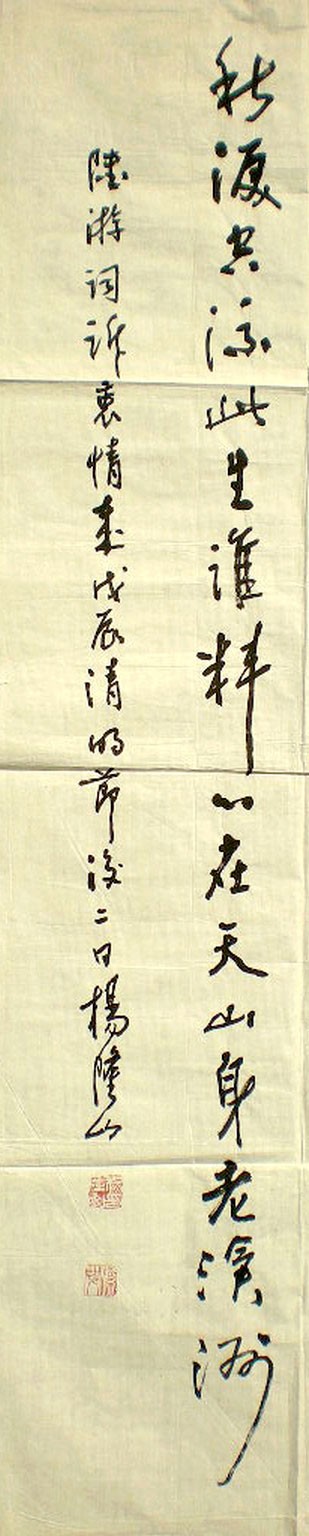 秋淚空流此生誰料心在天山身老滄洲
陸游詞訴衷情戊辰清明節後二日楊隆山